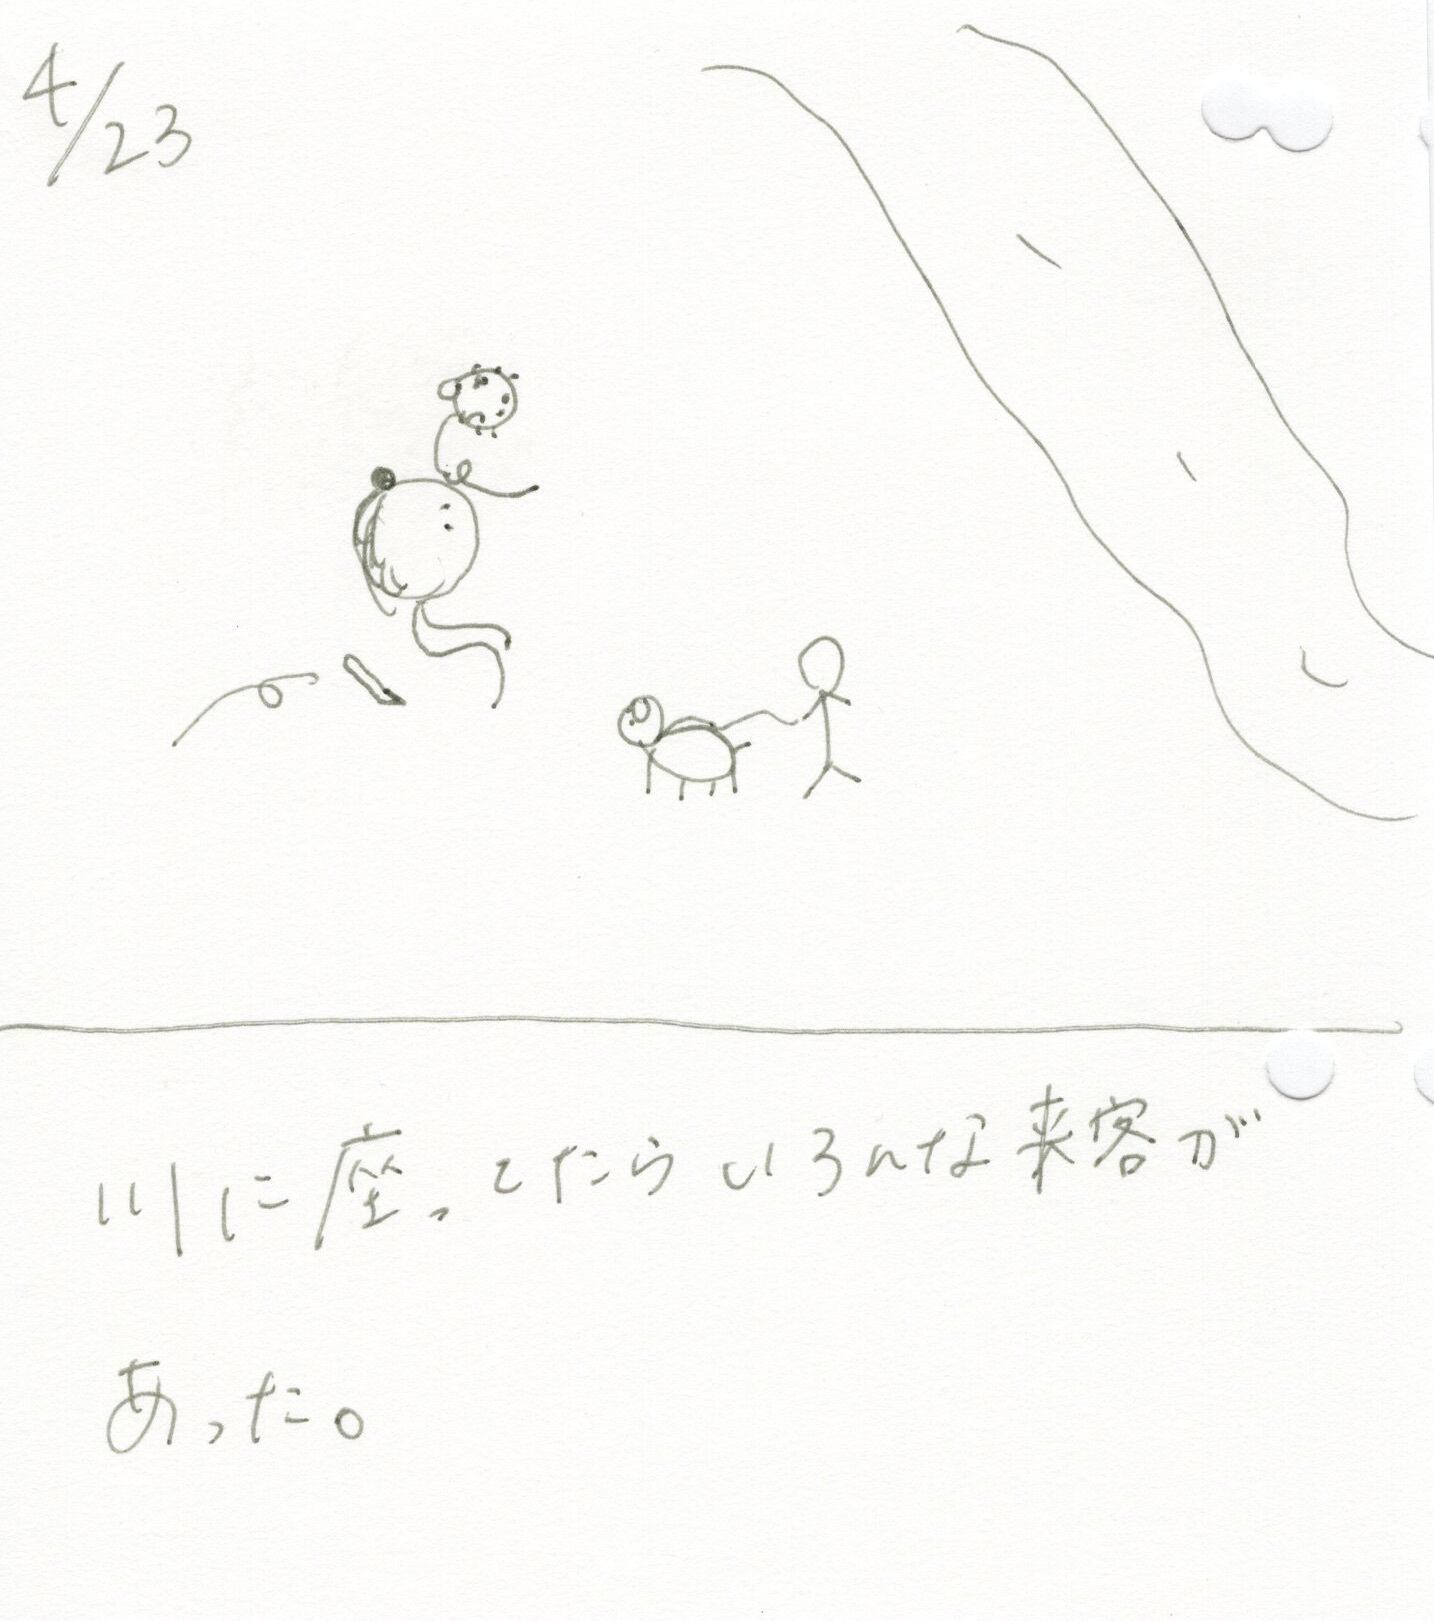 4/23
川に座ってたらいろんな来客が
あった。